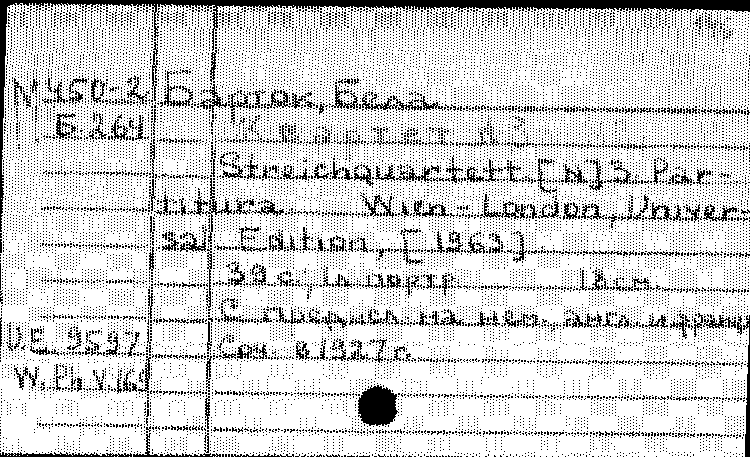 М 450-2 Барток, Бела
Б 264 Квартет № 3
Streichquartett [N] 3. Par-
titura Wien-London, Univer-
sal Edition, [1963]
39 с; 1 л портр 18 см.
С предисл на нем. англ и франц
U.E. 9597 Соч. в 1927 г.
W. Ph. V. 169